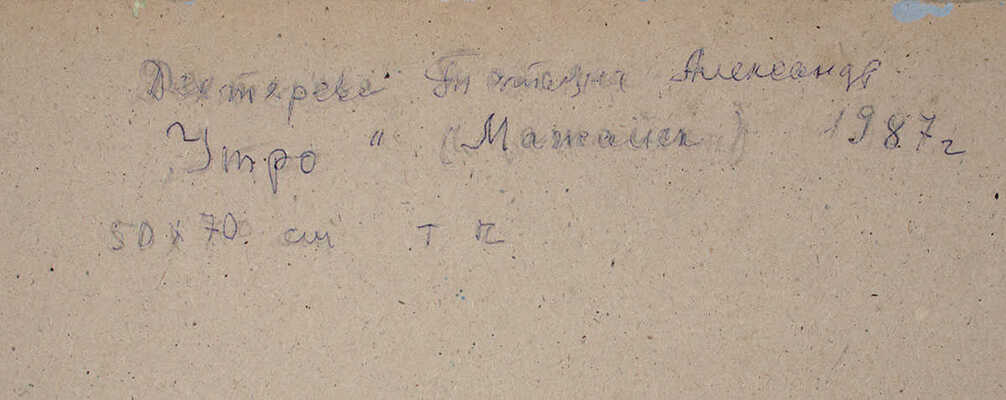 Дехтерева Татьяна Александр
Утро " (Можайск) 1987г
50 х 70. см т к